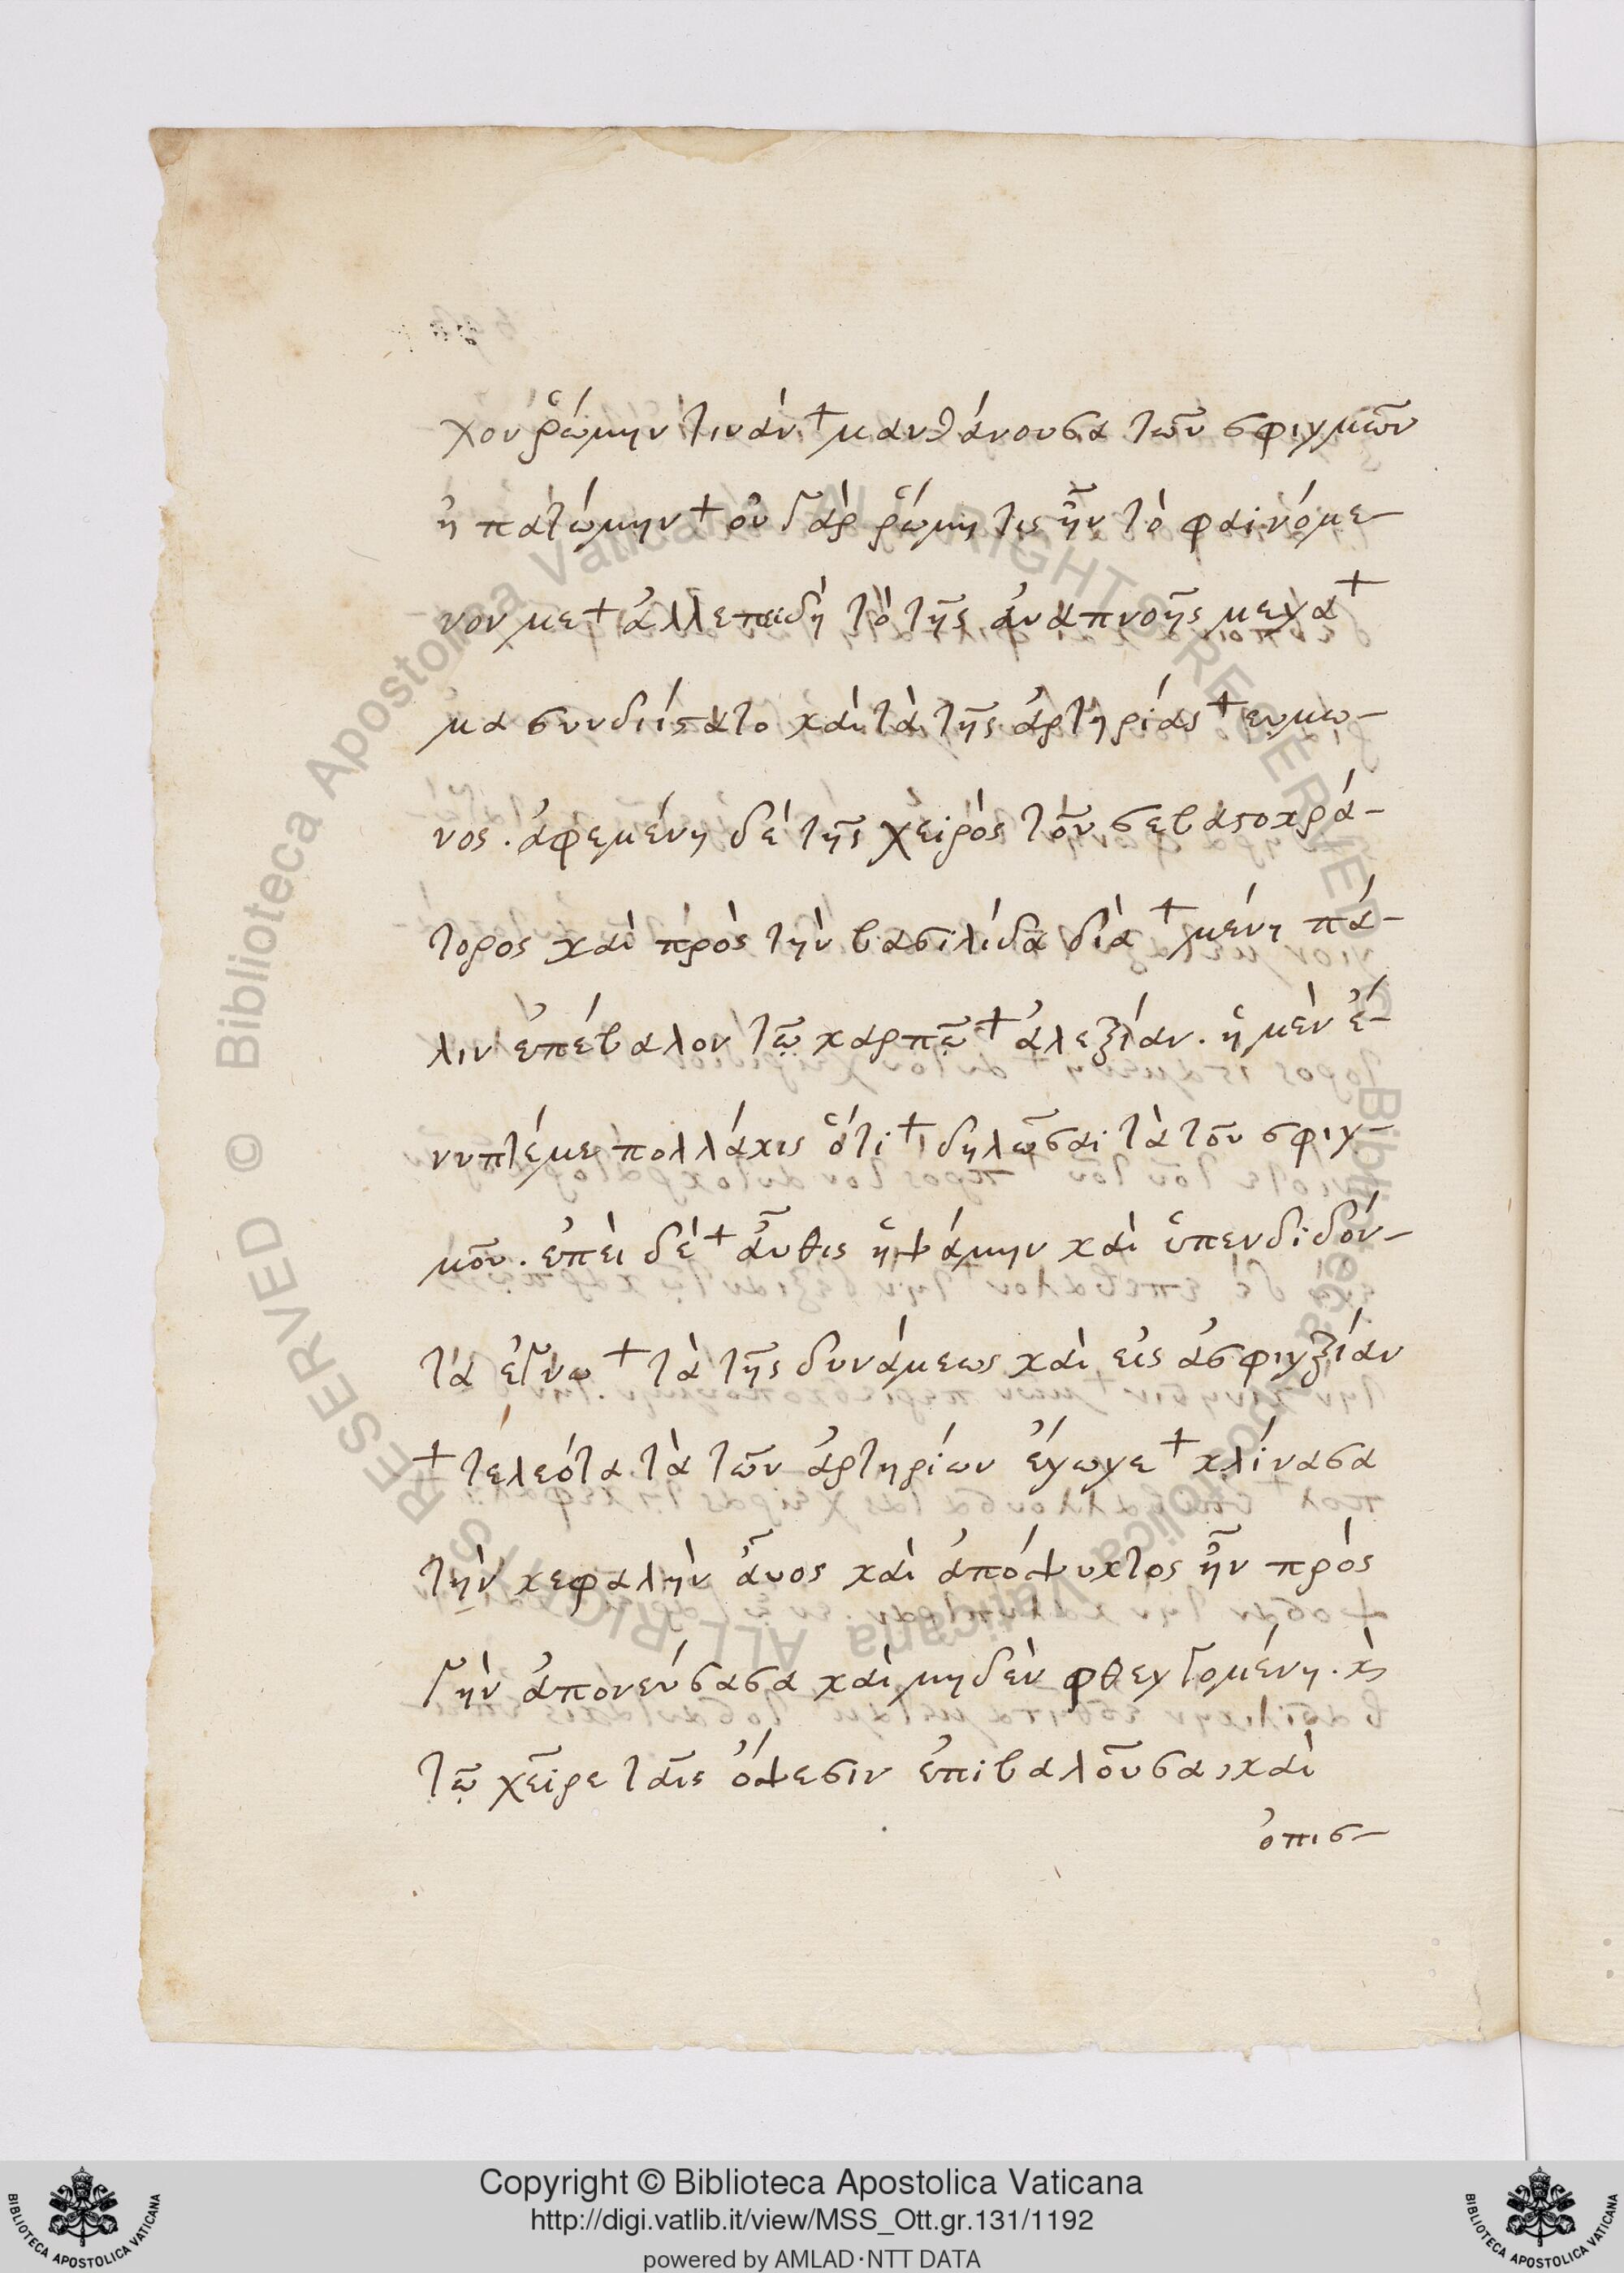 χον ῥώμην τινάν + μανθάνουσα τῶν σφιγμῶν
ἠπατώμην + οὐ γὰρ ῥώμη τις ἦν τὸ φαινόμε-
νον με + ἀλλεπειδὴ τὸ τῆς ἀναπνοῆς μεγα +
μα συνδιίστατο καὶ τὰ τῆς ἀρτηρίας + ευμω-
νος . ἀφεμένη δὲ τῆς χειρὸς τοῦ σεβαστοκρά-
τορος καὶ πρὸς τὴν βασιλίδα δια + μένη πά-
λιν ἐπέβαλον τῷ καρπῷ + ἀλεξίαν . ἡ μὲν ἐ-
νυπτέμε πολλάκις ὅτι + δηλῶσαι τὰ τοῦ σφιγ-
μοῦ . ἐπεὶ δὲ + αὖθις ἡψάμην καὶ ὑπενδιδόν-
τα ἐγνω + τὰ τῆς δυνάμεως καὶ εἰς ἀσφιγξίαν
+ τελεότα τὰ τῶν ἀρτηρίων ἔγωγε + κλίνασα
τὴν κεφαλὴν αὖος καὶ ἀπόψυκτος ἦν πρὸς
γὴν ἀπονεύσασα καὶ μηδὲν φθεγγομένη . κ
τῷ χεῖρε ταῖς ὄψεσιν ἐπιβαλοῦσα, καὶ
ὀπισ-
Copyright © Biblioteca Apostolica Vaticana
http://digi.vatlib.it/view/MSS_Ott.gr.131/1192
powered by AMLAD·NTT DATA
BIBLIOTECA APOSTOLICA VATICANA
BIBLIOTECA APOSTOLICA VATICANA